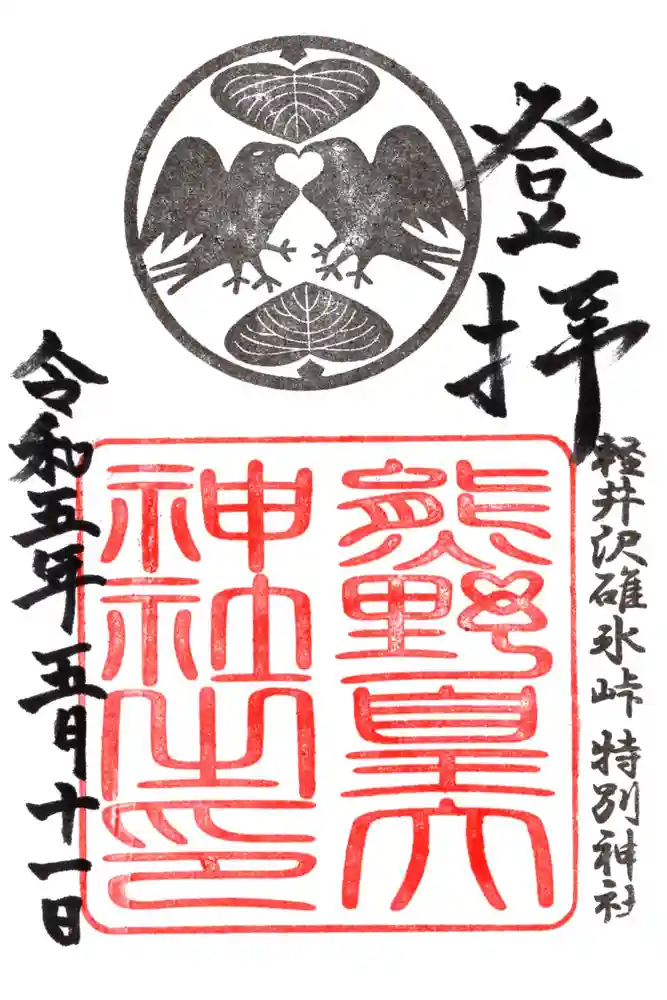 登拝
軽井沢碓氷峠特別神社
熊野皇大
神社之印
令和五年五月十一日